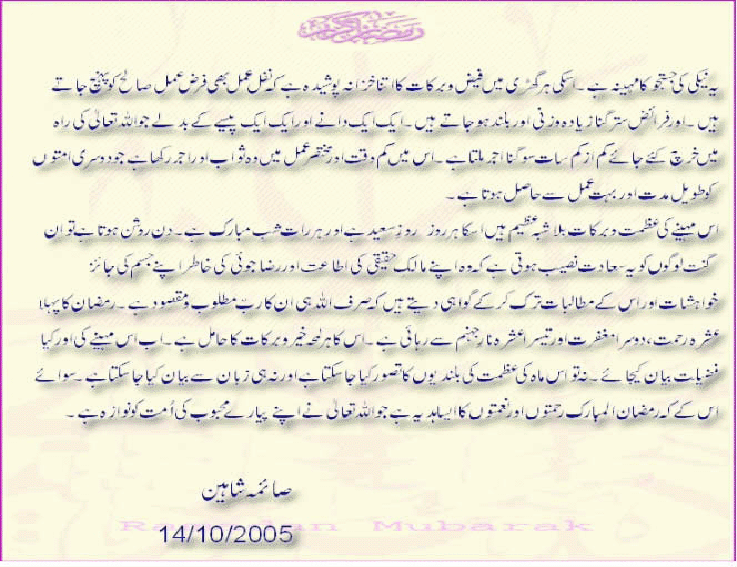 رمضان کریم
یہ نیکی کی جستجو کا مہینہ ہے ۔ اسکی ہر گھڑی میں فیض و برکات کا اتنا خزانہ پوشیدہ ہے کہ نفل عمل بھی فرض عمل صالح کو پہنچ جاتے
ہیں ۔ اور فرائض ستر گنا زیادہ وزنی اور بلند ہو جاتے ہیں ۔ ایک ایک دانے اور ایک ایک پیسے کے بدلے جو اللہ تعالیٰ کی راہ
میں خرچ کئے جائے کم از کم سات سو گنا اجر ملتا ہے ۔ اس میں کم وقت اور مختصر عمل میں وہ ثواب اور اجر رکھا ہے جو دوسری امتوں
کو طویل مدت اور بہت عمل سے حاصل ہوتا ہے ۔
اس مہینے کی عظمت و برکات بلا شبہ عظیم ہیں اسکا ہر روز روز سعید ہے اور ہر رات شب مبارک ہے ۔ دن روشن ہوتا ہے تو ان
گنت لوگوں کو یہ سعادت نصیب ہوتی ہے کہ وہ اپنے مالک حقیقی کی اطاعت اور رضا جوئی کی خاطر اپنے جسم کی جائز
خواہشات اور اس کے مطالبات ترک کر کے گواہی دیتے ہیں کہ صرف اللہ ہی ان کا رب مطلوب و مقصود ہے ۔ رمضان کا پہلا
عشرہ رحمت ، دوسرا مغفرت اور تیسرا عشرہ نار جہنم سے رہائی ہے ۔ اس کا ہر لمحہ خیر و برکات کا حامل ہے ۔ اب اس مہینے کی اور کیا
فضیات بیان کیجائے ۔ نہ تو اس ماہ کی عظمت کی بلندیوں کا تصور کیا جا سکتا ہے اور نہ ہی زبان سے بیان کیا جا سکتا ہے ۔ سوائے
اس کے کہ رمضان المبارک رحمتوں اور نعمتوں کا ایسا ہدیہ ہے جو اللہ تعالیٰ نے اپنے پیارے محبوب کی اُمت کو نوازہ ہے ۔
صائمہ شاہین
Ramadan Mubarak
14/10/2005